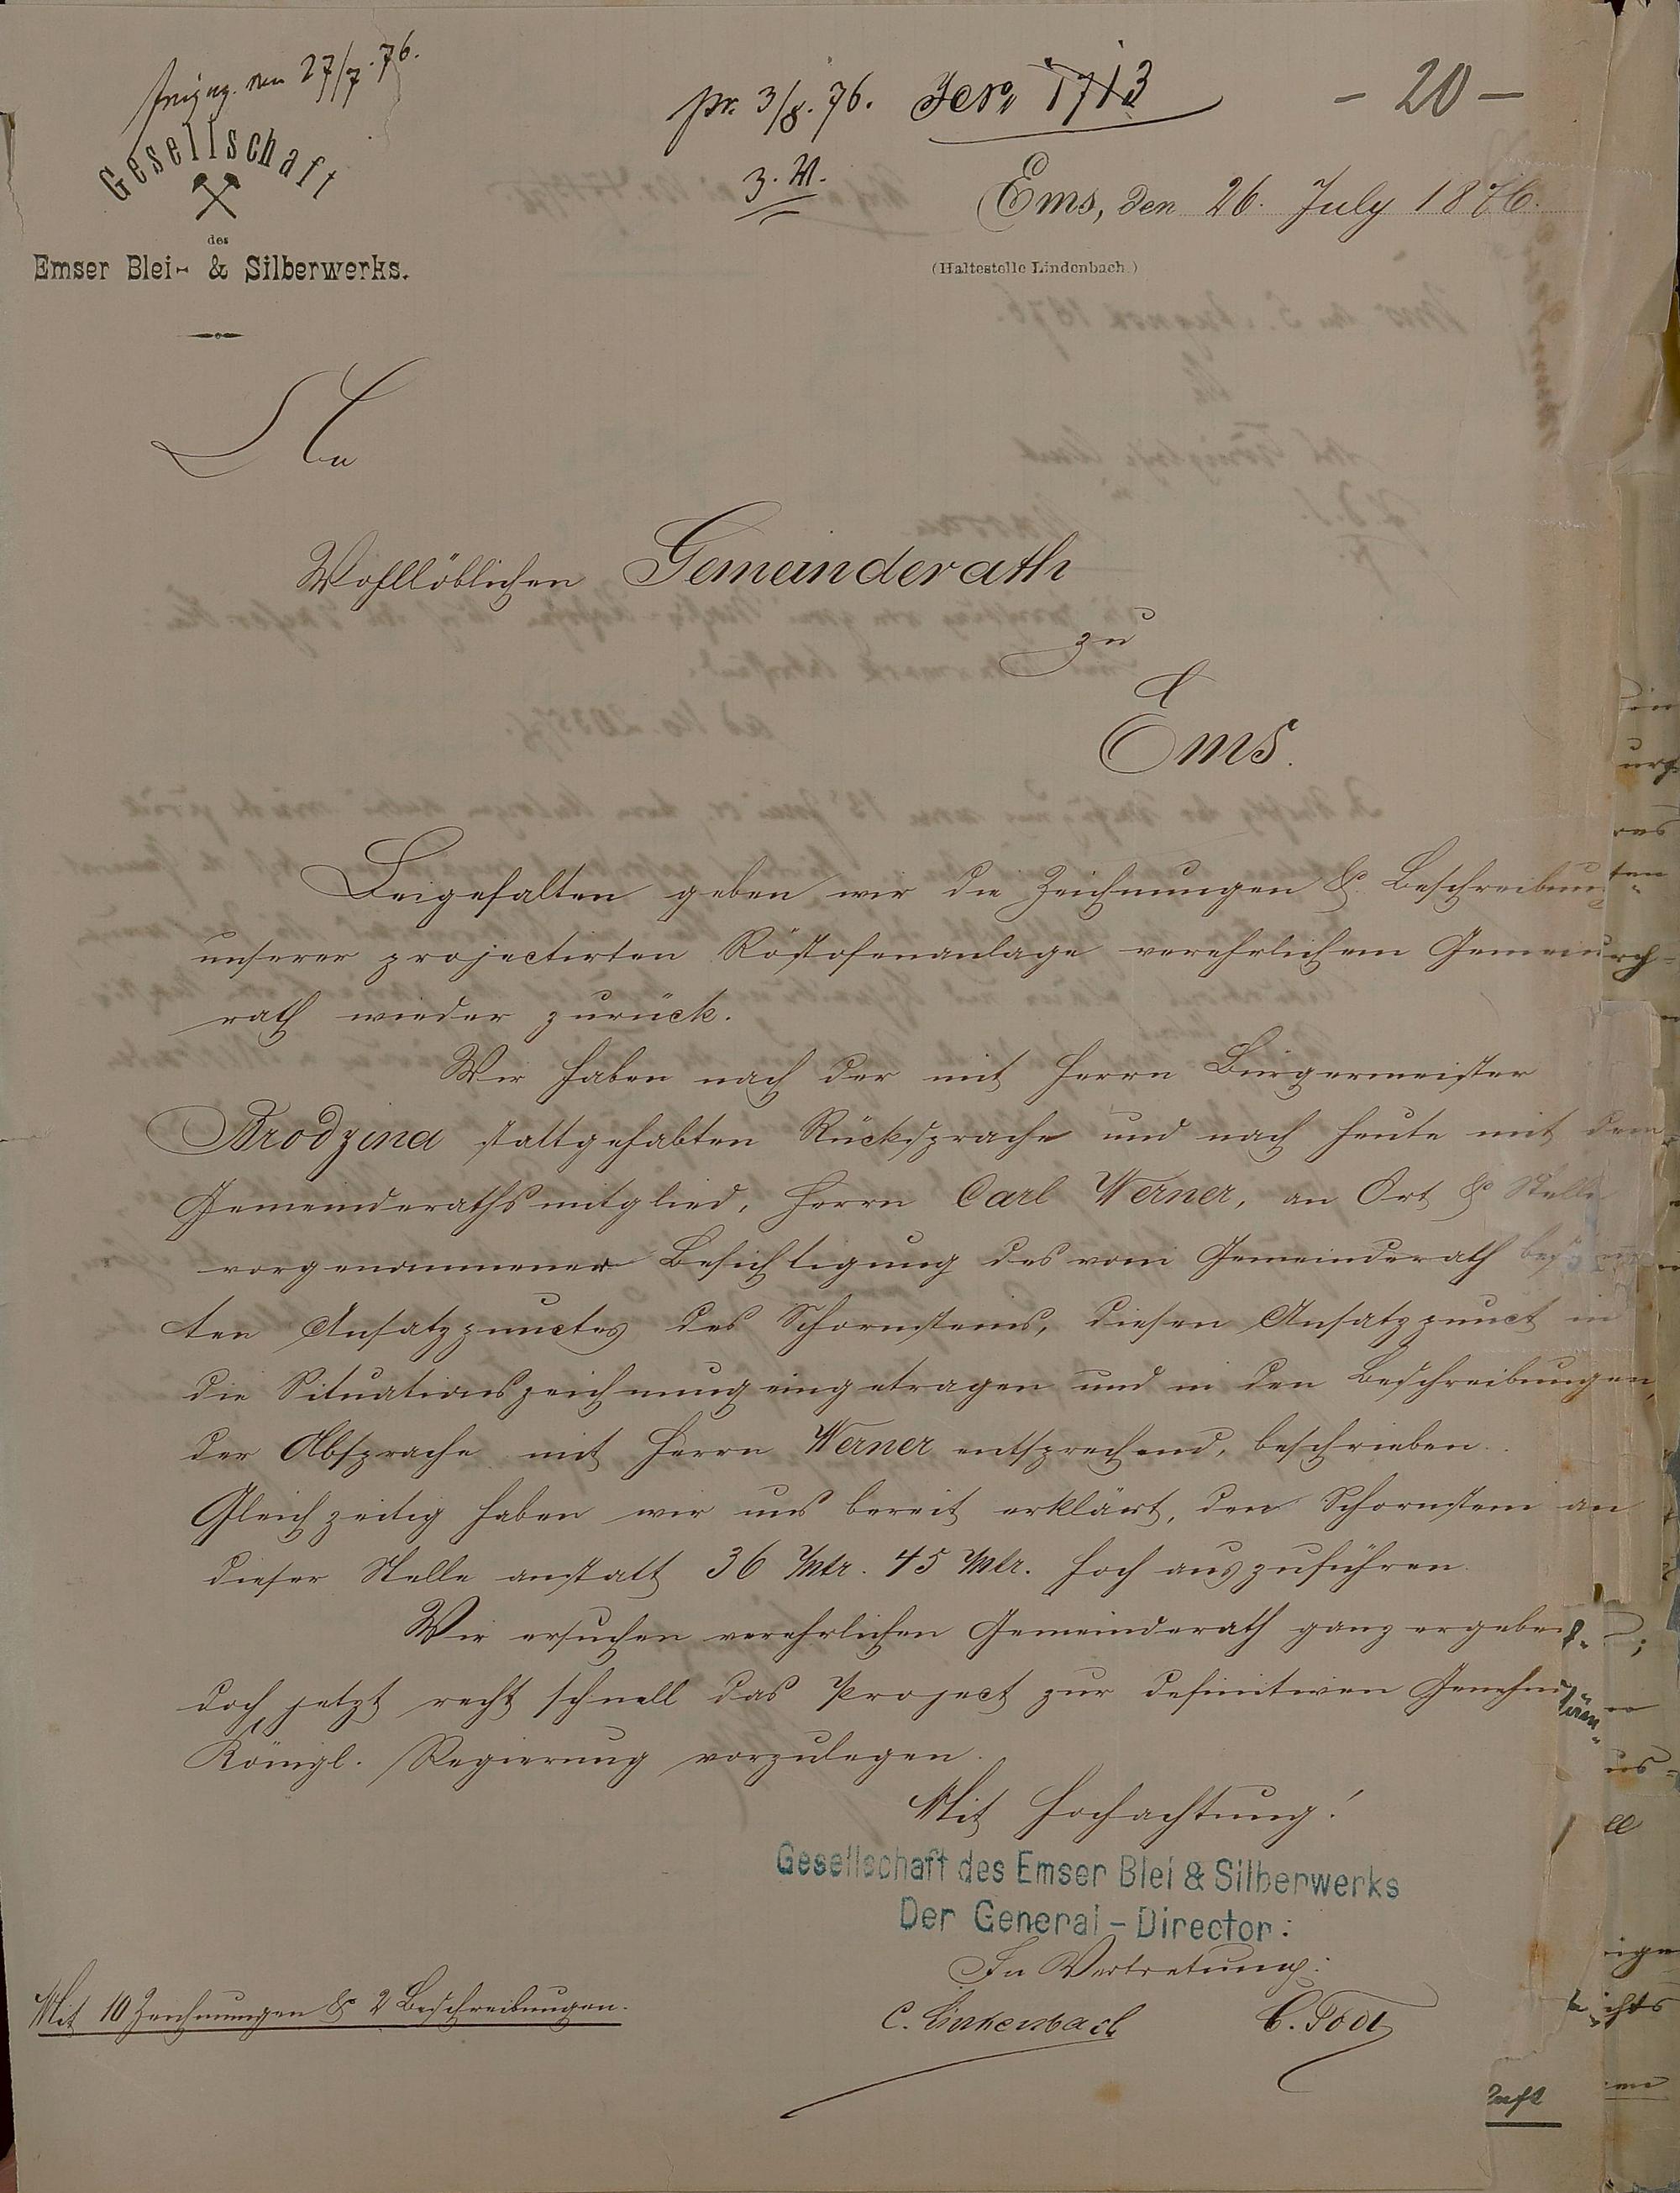 27/7.76.
pr. 3/8.76. 1713
- 20 -
Gesellschaft
des
Emser Blei- & Silberwerks.
Ems, den 26. July 1876.
(Haltestelle Lindenbach.)
An
Wohllöblichen Gemeinderath
zu
Ems.
Beigefalten geben wir die Zeichnungen & Beschreibun
unserer projectirten Röstofenanlage verehrlichem Gemein
rath wieder zurück.
Wir haben nach der mit Herrn Bürgermeister
Brodzina stattgehabten Rücksprache und nach heute mit dem
Gemeinderathsmitglied, Herrn Carl Werner, an Ort & Stelle
vorgenommener Besichtigung des vom Gemeinderath
ten Ansatzpunctes des Schornsteins, diesen Ansatzpunct in
die Situationszeichnung eingetragen und in den Beschreibungen,
der Absprache mit Herrn Werner entsprechend, beschrieben.
Gleichzeitig haben wir uns bereit erklärt, den Schornstein an
dieser Stelle anstatt 36 Mtr. 45 Mtr. hoch auszuführen.
Wir ersuchen verehrlichen Gemeinderath ganz ergeben
doch jetzt recht schnell das Project zur definitiven Genehmi
Königl. Regierung vorzulegen.
Mit Hochachtung!
Gesellschaft des Emser Blei & Silberwerks
Der General-Director:
In Vertretung:
C. Linkenbach C. Todt
Mit 10 Zeichnungen & 2 Beschreibungen.